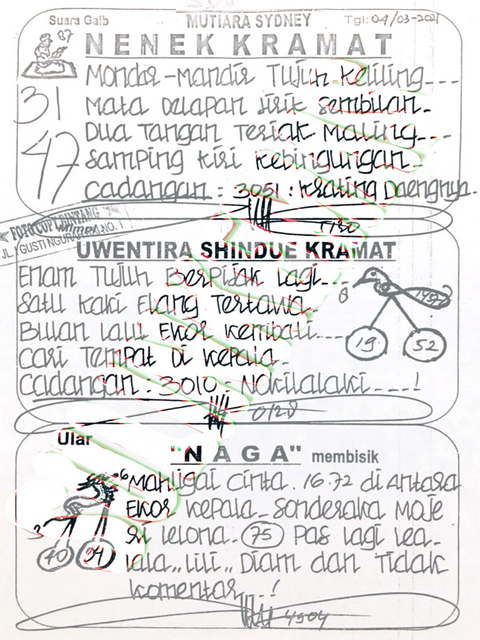 Suara Gaib MUTIARA SYDNEY Tgl: 04/03-2021
NENEK KRAMAT
87
Mondar-Mandir Tujuh Keliling---
31
Mata Delapan lirik Sembilan-
Dua Tangan Teriak Maling----
47
Samping Kiri Kebingungan-
Cadangan: 3051: Krating Daengnya.
1180
FOTO COPY BINTANG
JL. I GUSTI NGURAH NO. 1
UWENTIRA SHINDUE KRAMAT
Enam Tujuh Berpijak Lagi---
Satu Kaki Elang Tertawa-
8
Bulan Lalu Ekor Kembali----
19 52
Cari Tempat Di Kepala-
Cadangan: 3010- Nokilalaki----!
0128
Ular "NAGA" membisik
6 Mahligai Cinta. 16.72 di Antara
Ekor Kepala- Sonderaka Moje
3
Sri Lelona- 75 Pas Lagi Lea-
40 94
Lala.. Lili.. Diam dan Tidak
Komentar--!
4504